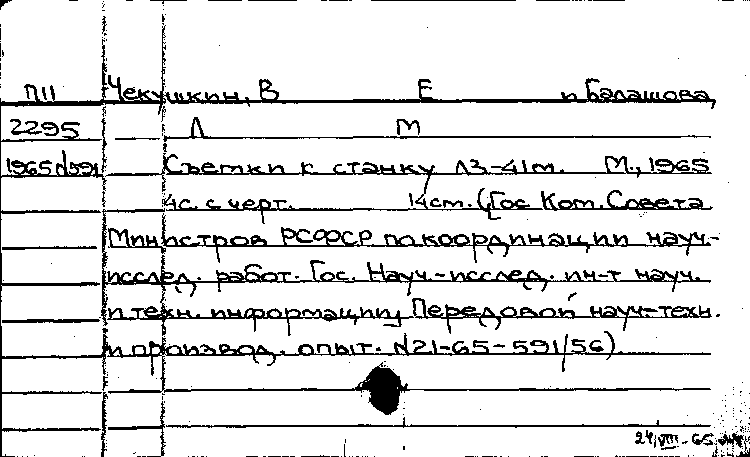 П11 Чекушкин, В Е и Балашова,
2295 Л М
1965 №591 Съемки к станку ЛЗ-41м. М., 1965
4с. с черт. 14см. (Гос Ком. Совета
Министров РСФСР по координации науч.-
исслед. работ. Гос. Науч.-исслед. ин-т науч.
и техн. информации, Передовой науч-техн.
и производ. опыт. №21-65-591/56).
24/VIII-65